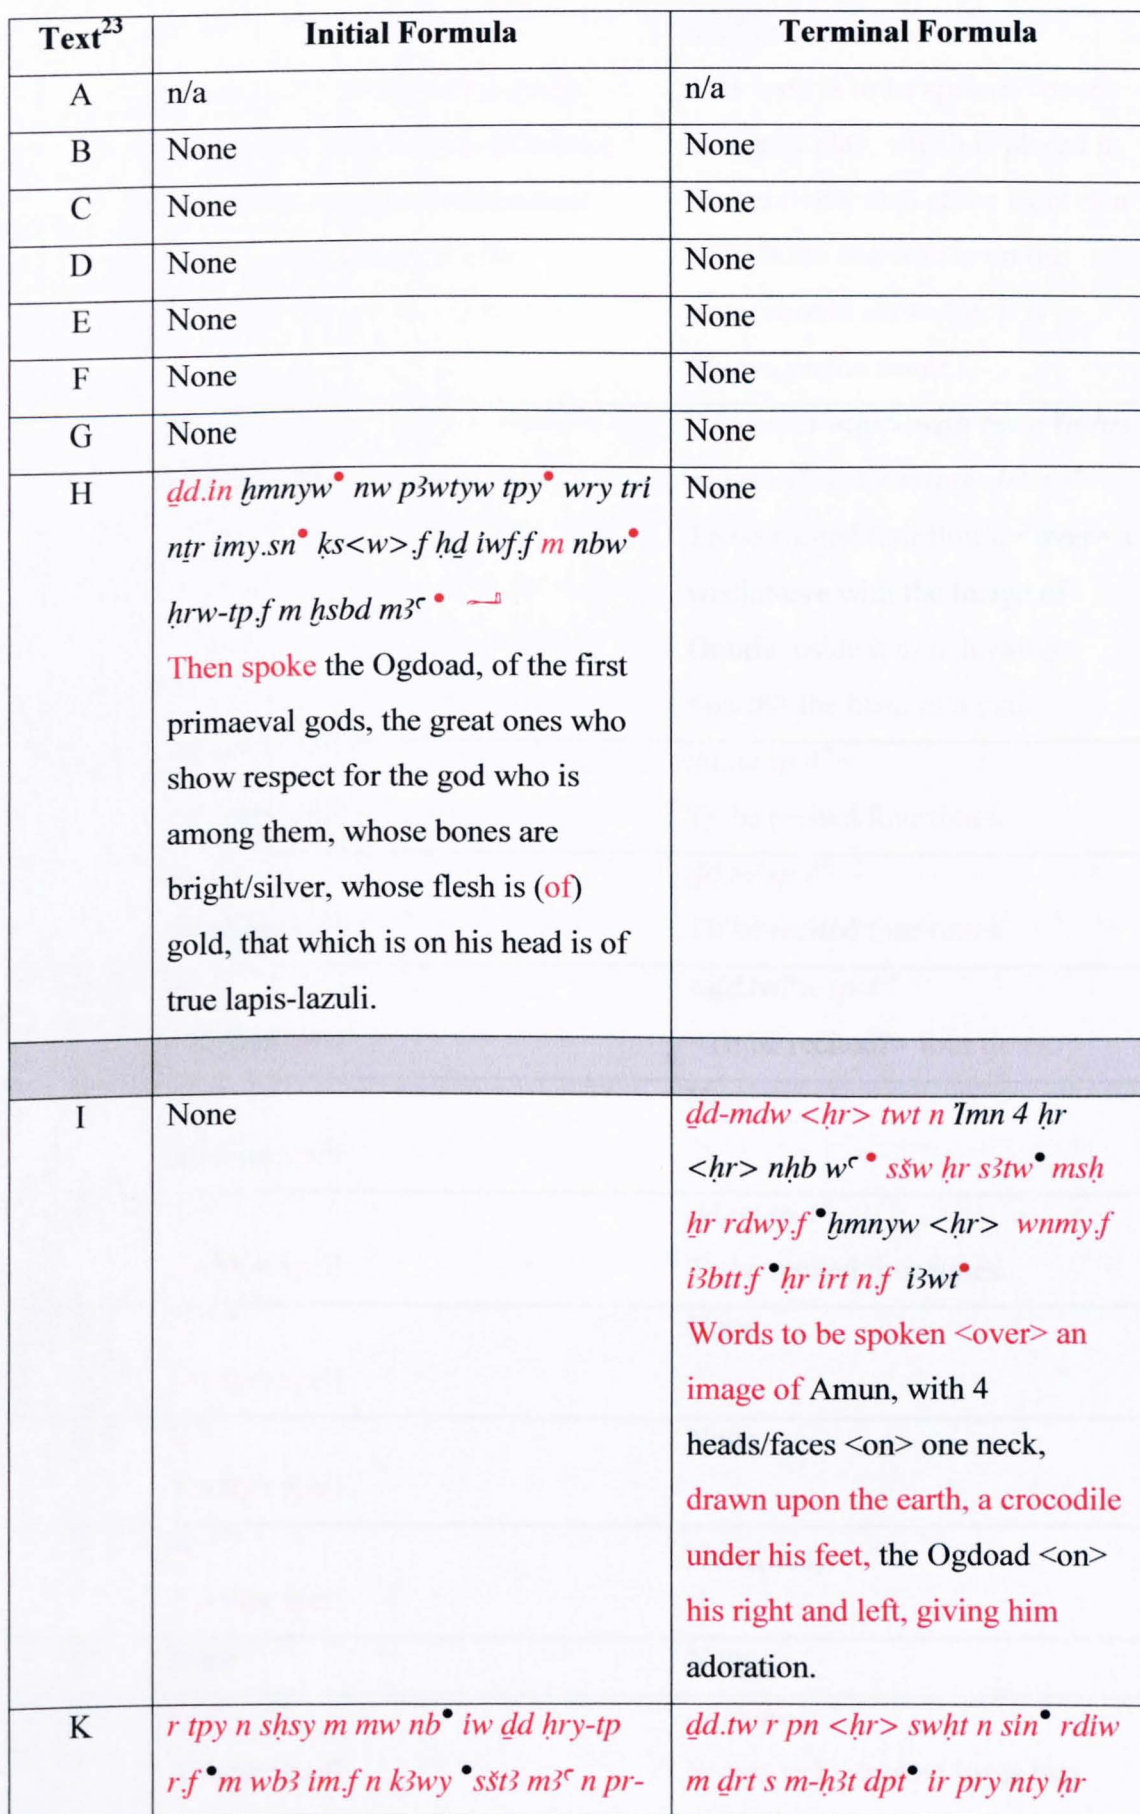 Text23 Initial Formula Terminal Formula
A n/a n/a
B None None
C None None
D None None
E None None
F None None
G None None
H ḏd.in ḫmnyw• nw pꜣwtyw tpy• wry tri None
nṯr imy.sn• ḳs<w>.f ḥḏ iwf.f m nbw•
ḥrw-tp.f m ḫsbd mꜣꜥ •
Then spoke the Ogdoad, of the first
primaeval gods, the great ones who
show respect for the god who is
among them, whose bones are
bright/silver, whose flesh is (of)
gold, that which is on his head is of
true lapis-lazuli.
I None ḏd-mdw <ḥr> twt n Imn 4 ḥr
<ḥr> nḥb wꜥ • sšw ḥr sꜣtw• msḥ
ẖr rdwy.f •ḫmnyw <ḥr> wnmy.f
iꜣbtt.f •ḥr irt n.f iꜣwt•
Words to be spoken <over> an
image of Amun, with 4
heads/faces <on> one neck,
drawn upon the earth, a crocodile
under his feet, the Ogdoad <on>
his right and left, giving him
adoration.
K r tpy n sḥsy m mw nb• iw ḏd ḥry-tp ḏd.tw r pn <ḥr> swḥt n sin• rdiw
r.f •m wbꜣ im.f n kꜣwy •sštꜣ mꜣꜥ n pr- m ḏrt s m-ḥꜣt dpt• ir pry nty ḥr